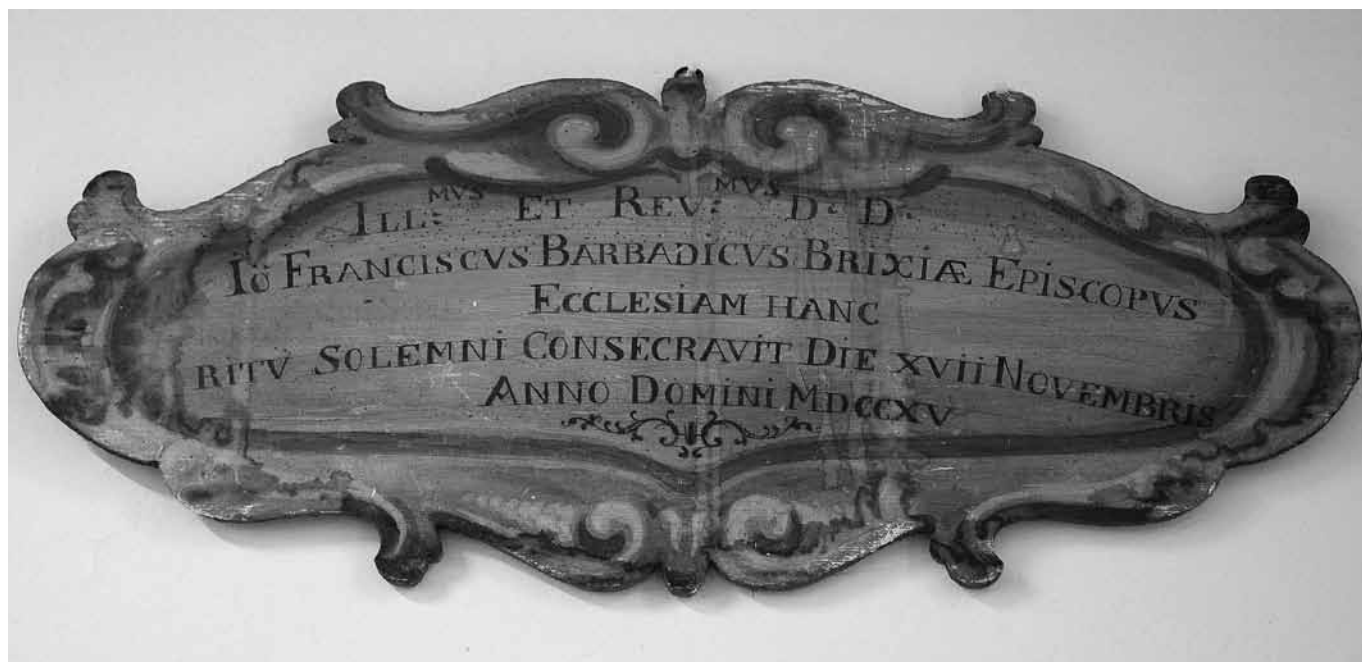 ILL:MVS ET REV:MVS D: D:
IÖ FRANCISCVS BARBADICVS BRIXIÆ EPISCOPVS
ECCLESIAM HANC
RITV SOLEMNI CONSECRAVIT DIE XVII NOVEMBRIS
ANNO DOMINI MDCCXV